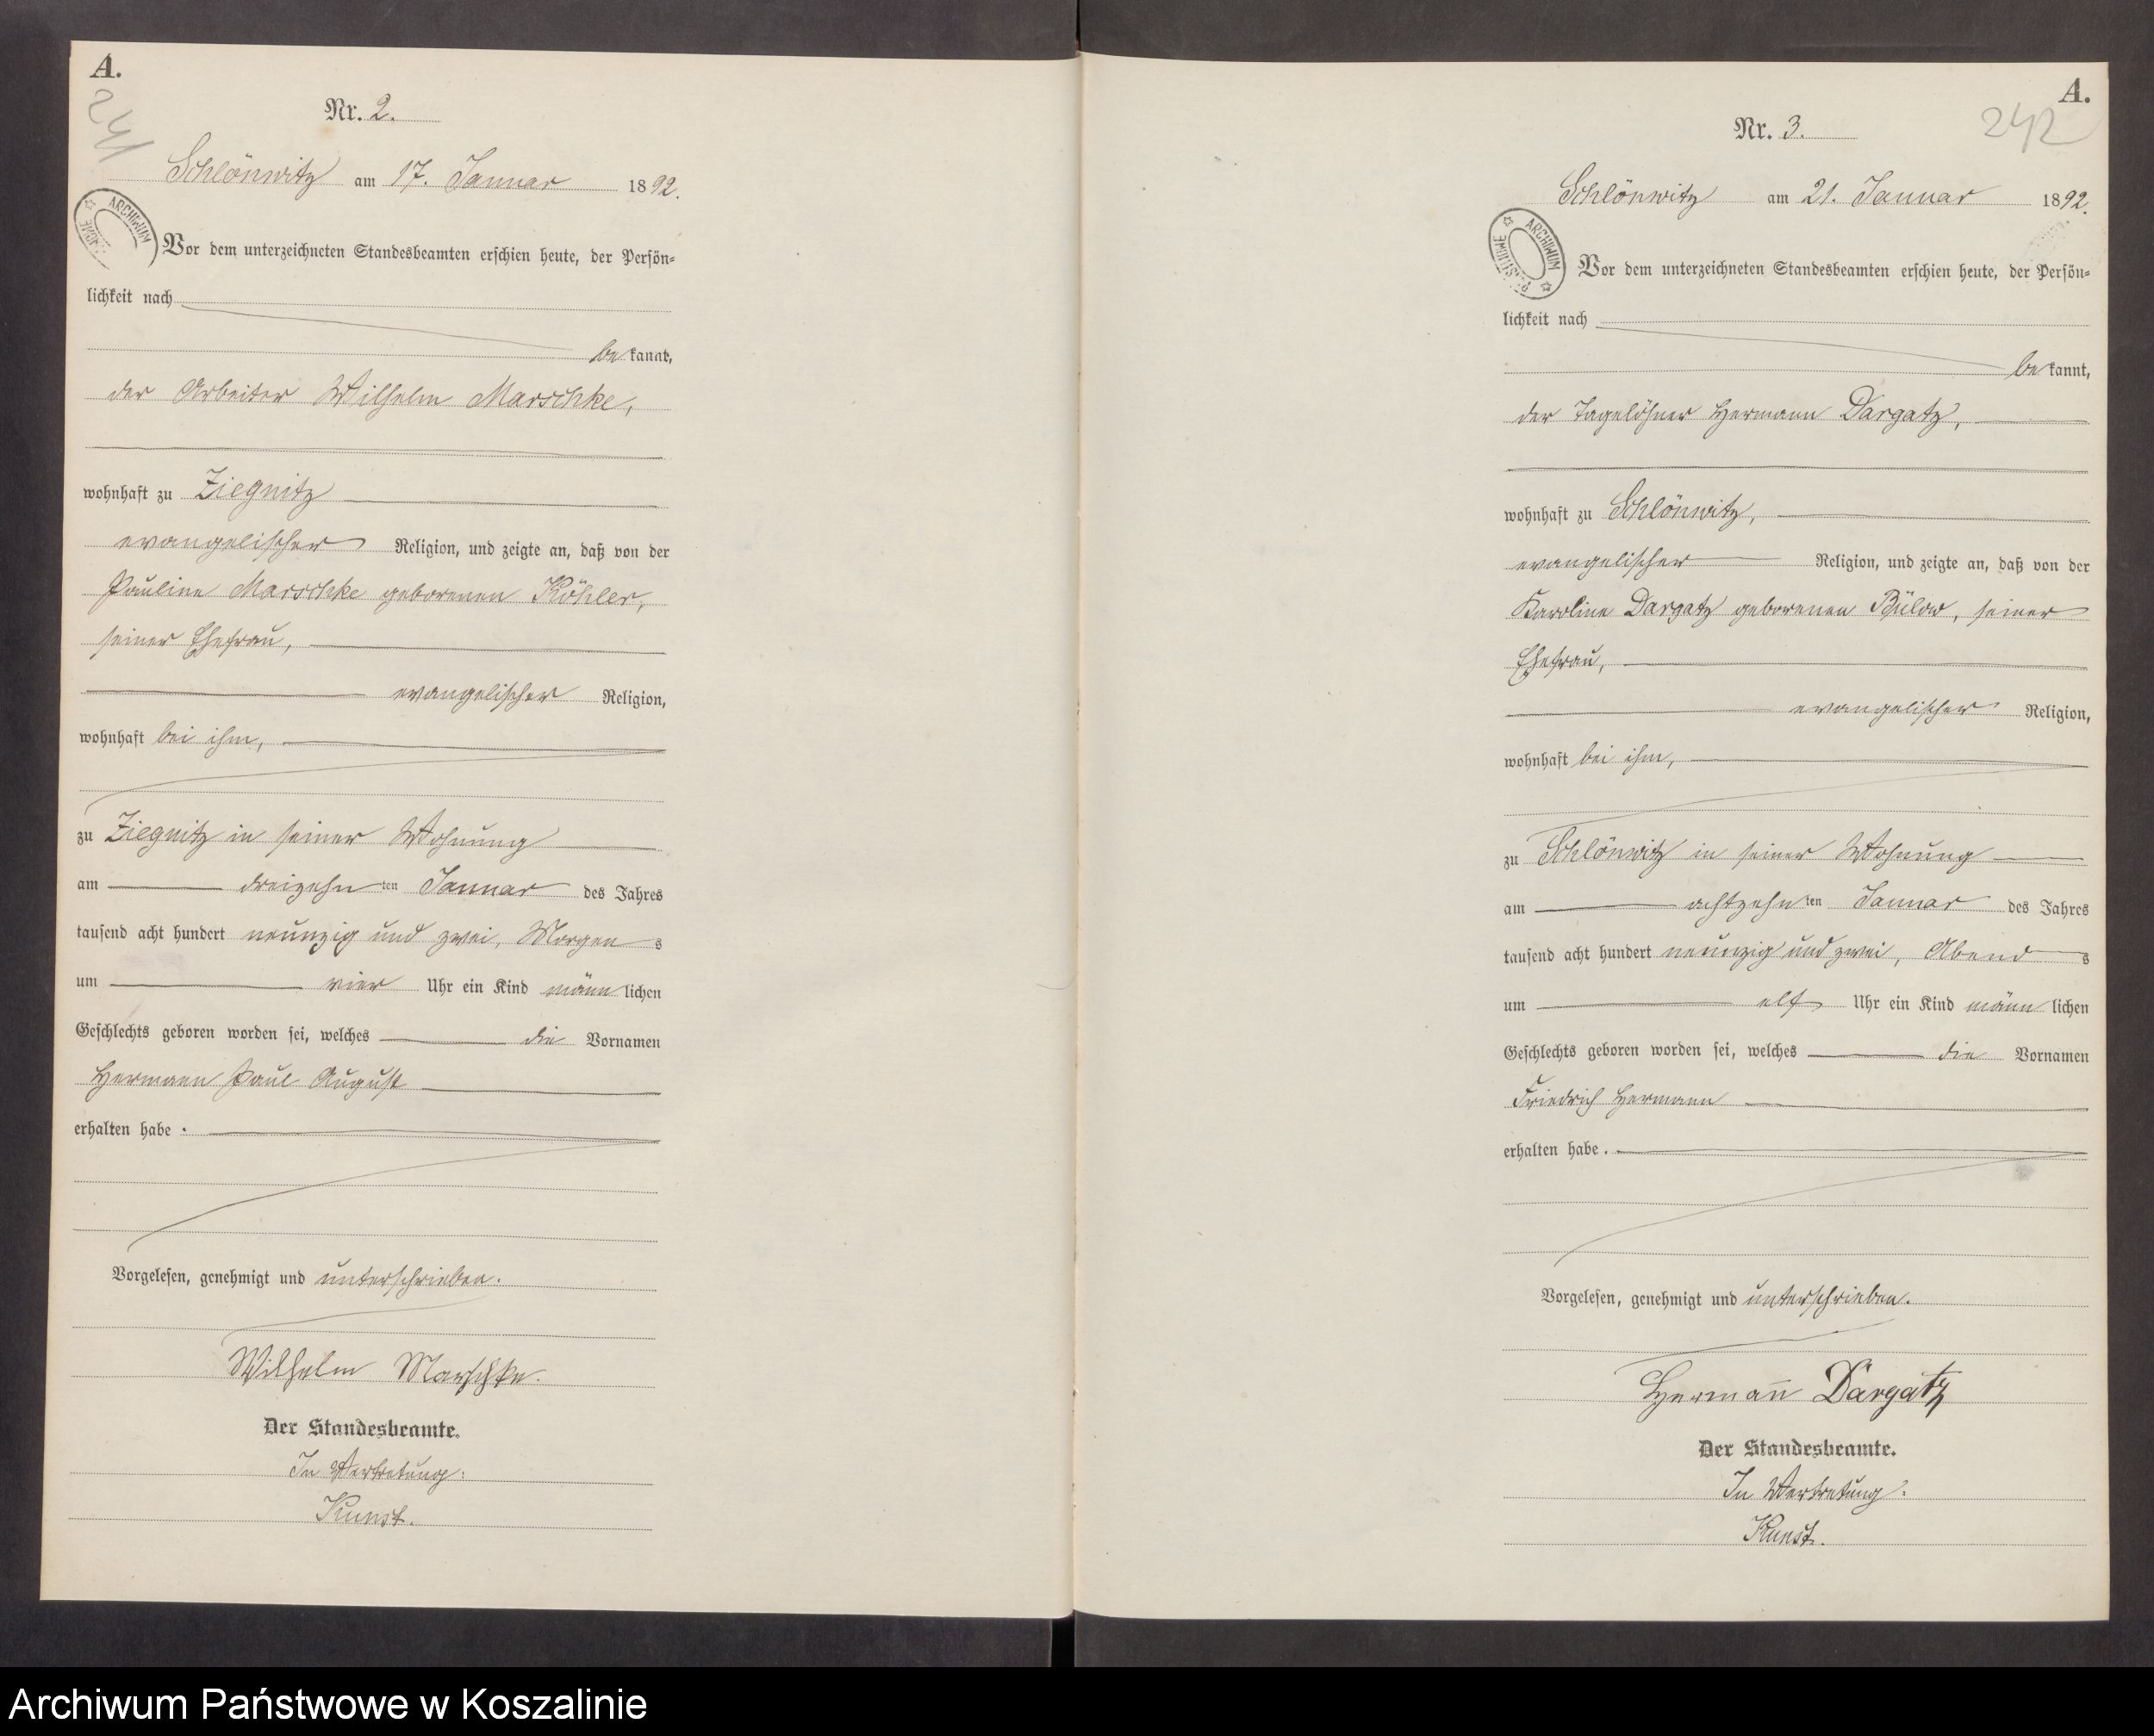 A.
241
Nr. 2.
Schlönwitz am 17. Januar 1892.
ARCHIWUM
Vor dem unterzeichneten Standesbeamten erschien heute, der Persön=
lichkeit nach
bekannt,
der Arbeiter Wilhelm Marschke,
wohnhaft zu Ziegnitz
evangelischer Religion, und zeigte an, daß von der
Pauline Marschke geborenen Köhler,
seiner Ehefrau,
evangelischer Religion,
wohnhaft bei ihm,
zu Ziegnitz in seiner Wohnung
am dreizehnten Januar des Jahres
tausend acht hundert neunzig und zwei, Morgens
um vier Uhr ein Kind männlichen
Geschlechts geboren worden sei, welches die Vornamen
Hermann Paul August
erhalten habe.
Vorgelesen, genehmigt und unterschrieben.
Wilhelm Marschke.
Der Standesbeamte.
In Vertretung:
Kunst.
A.
242
Nr. 3.
Schlönwitz am 21. Januar 1892.
ARCHIWUM
Vor dem unterzeichneten Standesbeamten erschien heute, der Persön=
lichkeit nach
bekannt,
der Tagelöhner Hermann Dargatz,
wohnhaft zu Schlönwitz,
evangelischer Religion, und zeigte an, daß von der
Karoline Dargatz geborenen Bülow, seiner
Ehefrau,
evangelischer Religion,
wohnhaft bei ihm,
zu Schlönwitz in seiner Wohnung
am achtzehnten Januar des Jahres
tausend acht hundert neunzig und zwei, Abends
um elf Uhr ein Kind männlichen
Geschlechts geboren worden sei, welches die Vornamen
Friedrich Hermann
erhalten habe.
Vorgelesen, genehmigt und unterschrieben.
Hermann Dargatz
Der Standesbeamte.
In Vertretung:
Kunst.
Archiwum Państwowe w Koszalinie